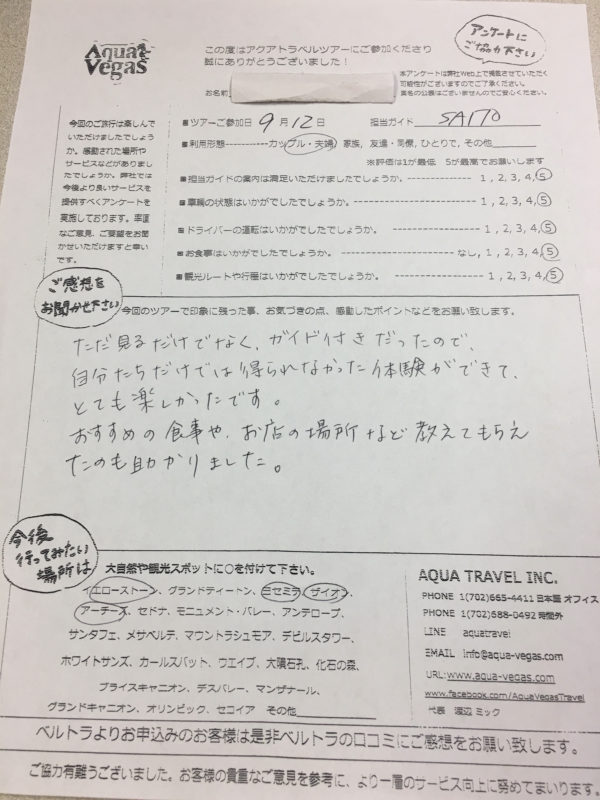 Aqua Vegas
この度はアクアトラベルツアーにご参加くださり
誠にありがとうございました！
アンケートに
ご協力下さい
本アンケートは弊社Web上で掲載させていただく
可能性がございますのでご了承ください。
実名の公表はございませんのでご安心ください。
お名前
今回のご旅行は楽しんで
いただけましたでしょう
か。感動された場所や
サービスなどがありまし
たでしょうか。弊社では
今後より良いサービスを
提供すべくアンケートを
実施しております。率直
なご意見、ご要望をお聞
かせいただけますと幸い
です。
■ツアーご参加日 9月12日 担当ガイド SAITO
■利用形態------------カップル・夫婦, 家族, 友達・同僚, ひとりで, その他
※評価は1が最低、5が最高でお願いします
■担当ガイドの案内は満足いただけましたでしょうか。------------ 1, 2, 3, 4, 5
■車輌の状態はいかがでしたでしょうか。------------ 1, 2, 3, 4, 5
■ドライバーの運転はいかがでしたでしょうか。------------ 1, 2, 3, 4, 5
■お食事はいかがでしたでしょうか。------------ なし, 1, 2, 3, 4, 5
■観光ルートや行程はいかがでしたでしょうか。------------ 1, 2, 3, 4, 5
ご感想を
お聞かせ下さい
今回のツアーで印象に残った事、お気づきの点、感動したポイントなどをお願い致します。
ただ見るだけでなく、ガイド付きだったので、
自分たちだけでは得られなかった体験ができて、
とても楽しかったです。
おすすめの食事や、お店の場所など教えてもらえ
たのも助かりました。
今後
行ってみたい
場所は
大自然や観光スポットに○を付けて下さい。
イエローストーン、グランドティートン、ヨセミテ、ザイオン、
アーチーズ、セドナ、モニュメント・バレー、アンテロープ、
サンタフェ、メサベルデ、マウントラシュモア、デビルスタワー、
ホワイトサンズ、カールスバット、ウエイブ、大隕石孔、化石の森、
ブライスキャニオン、デスバレー、マンザナール、
グランドキャニオン、オリンピック、セコイア その他
AQUA TRAVEL INC.
PHONE 1(702)665-4411 日本語 オフィス
PHONE 1(702)688-0492 時間外
LINE aquatravel
EMAIL info@aqua-vegas.com
URL:www.aqua-vegas.com
www.facebook.com/AquaVegasTravel
代表 渡辺 ミック
ベルトラよりお申込みのお客様は是非ベルトラの口コミにご感想をお願い致します。
ご協力有難うございました。お客様の貴重なご意見を参考に、より一層のサービス向上に努めてまいります。